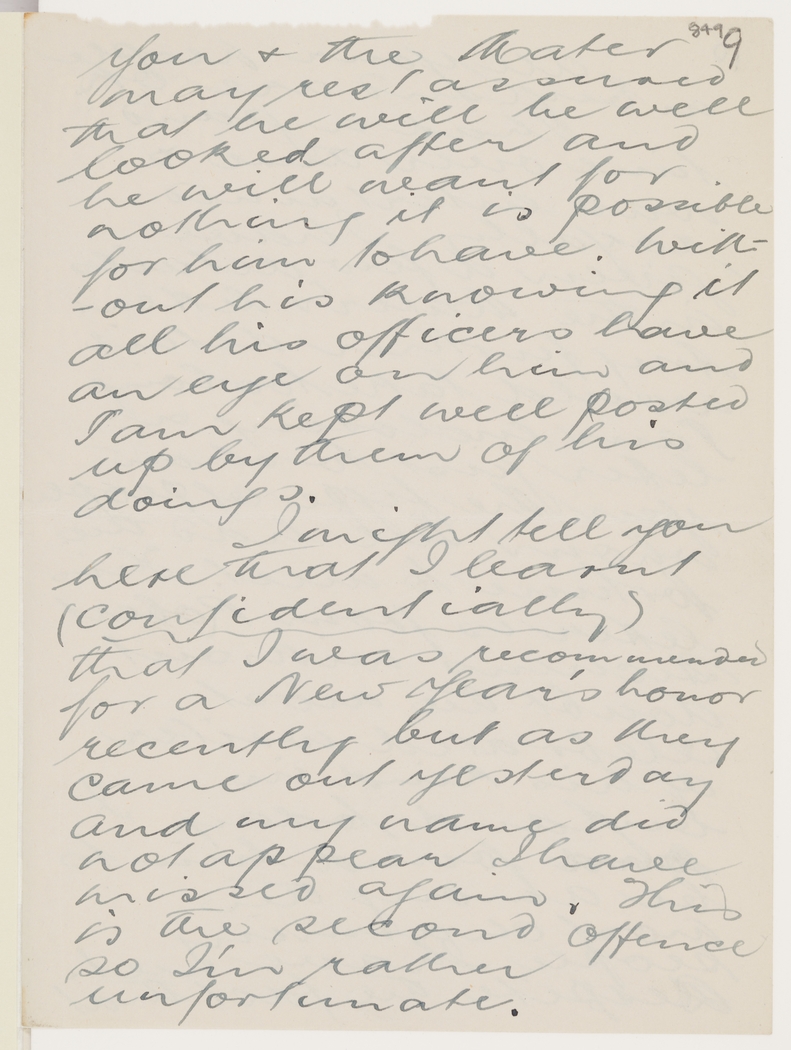 849 9
you & the Mater
may rest assured
that he will be well
looked after and
he will want for
nothing it is possible
for him to have. With-
-out his knowing it
all his officers have
an eye on him and
I am kept well posted
up by them of his
doings.
I might tell you
here that I learnt
(confidentially)
that I was recommended
for a New Year's honor
recently but as they
came out yesterday
and my name did
not appear I have
missed again. This
is the second offence
so I'm rather
unfortunate.